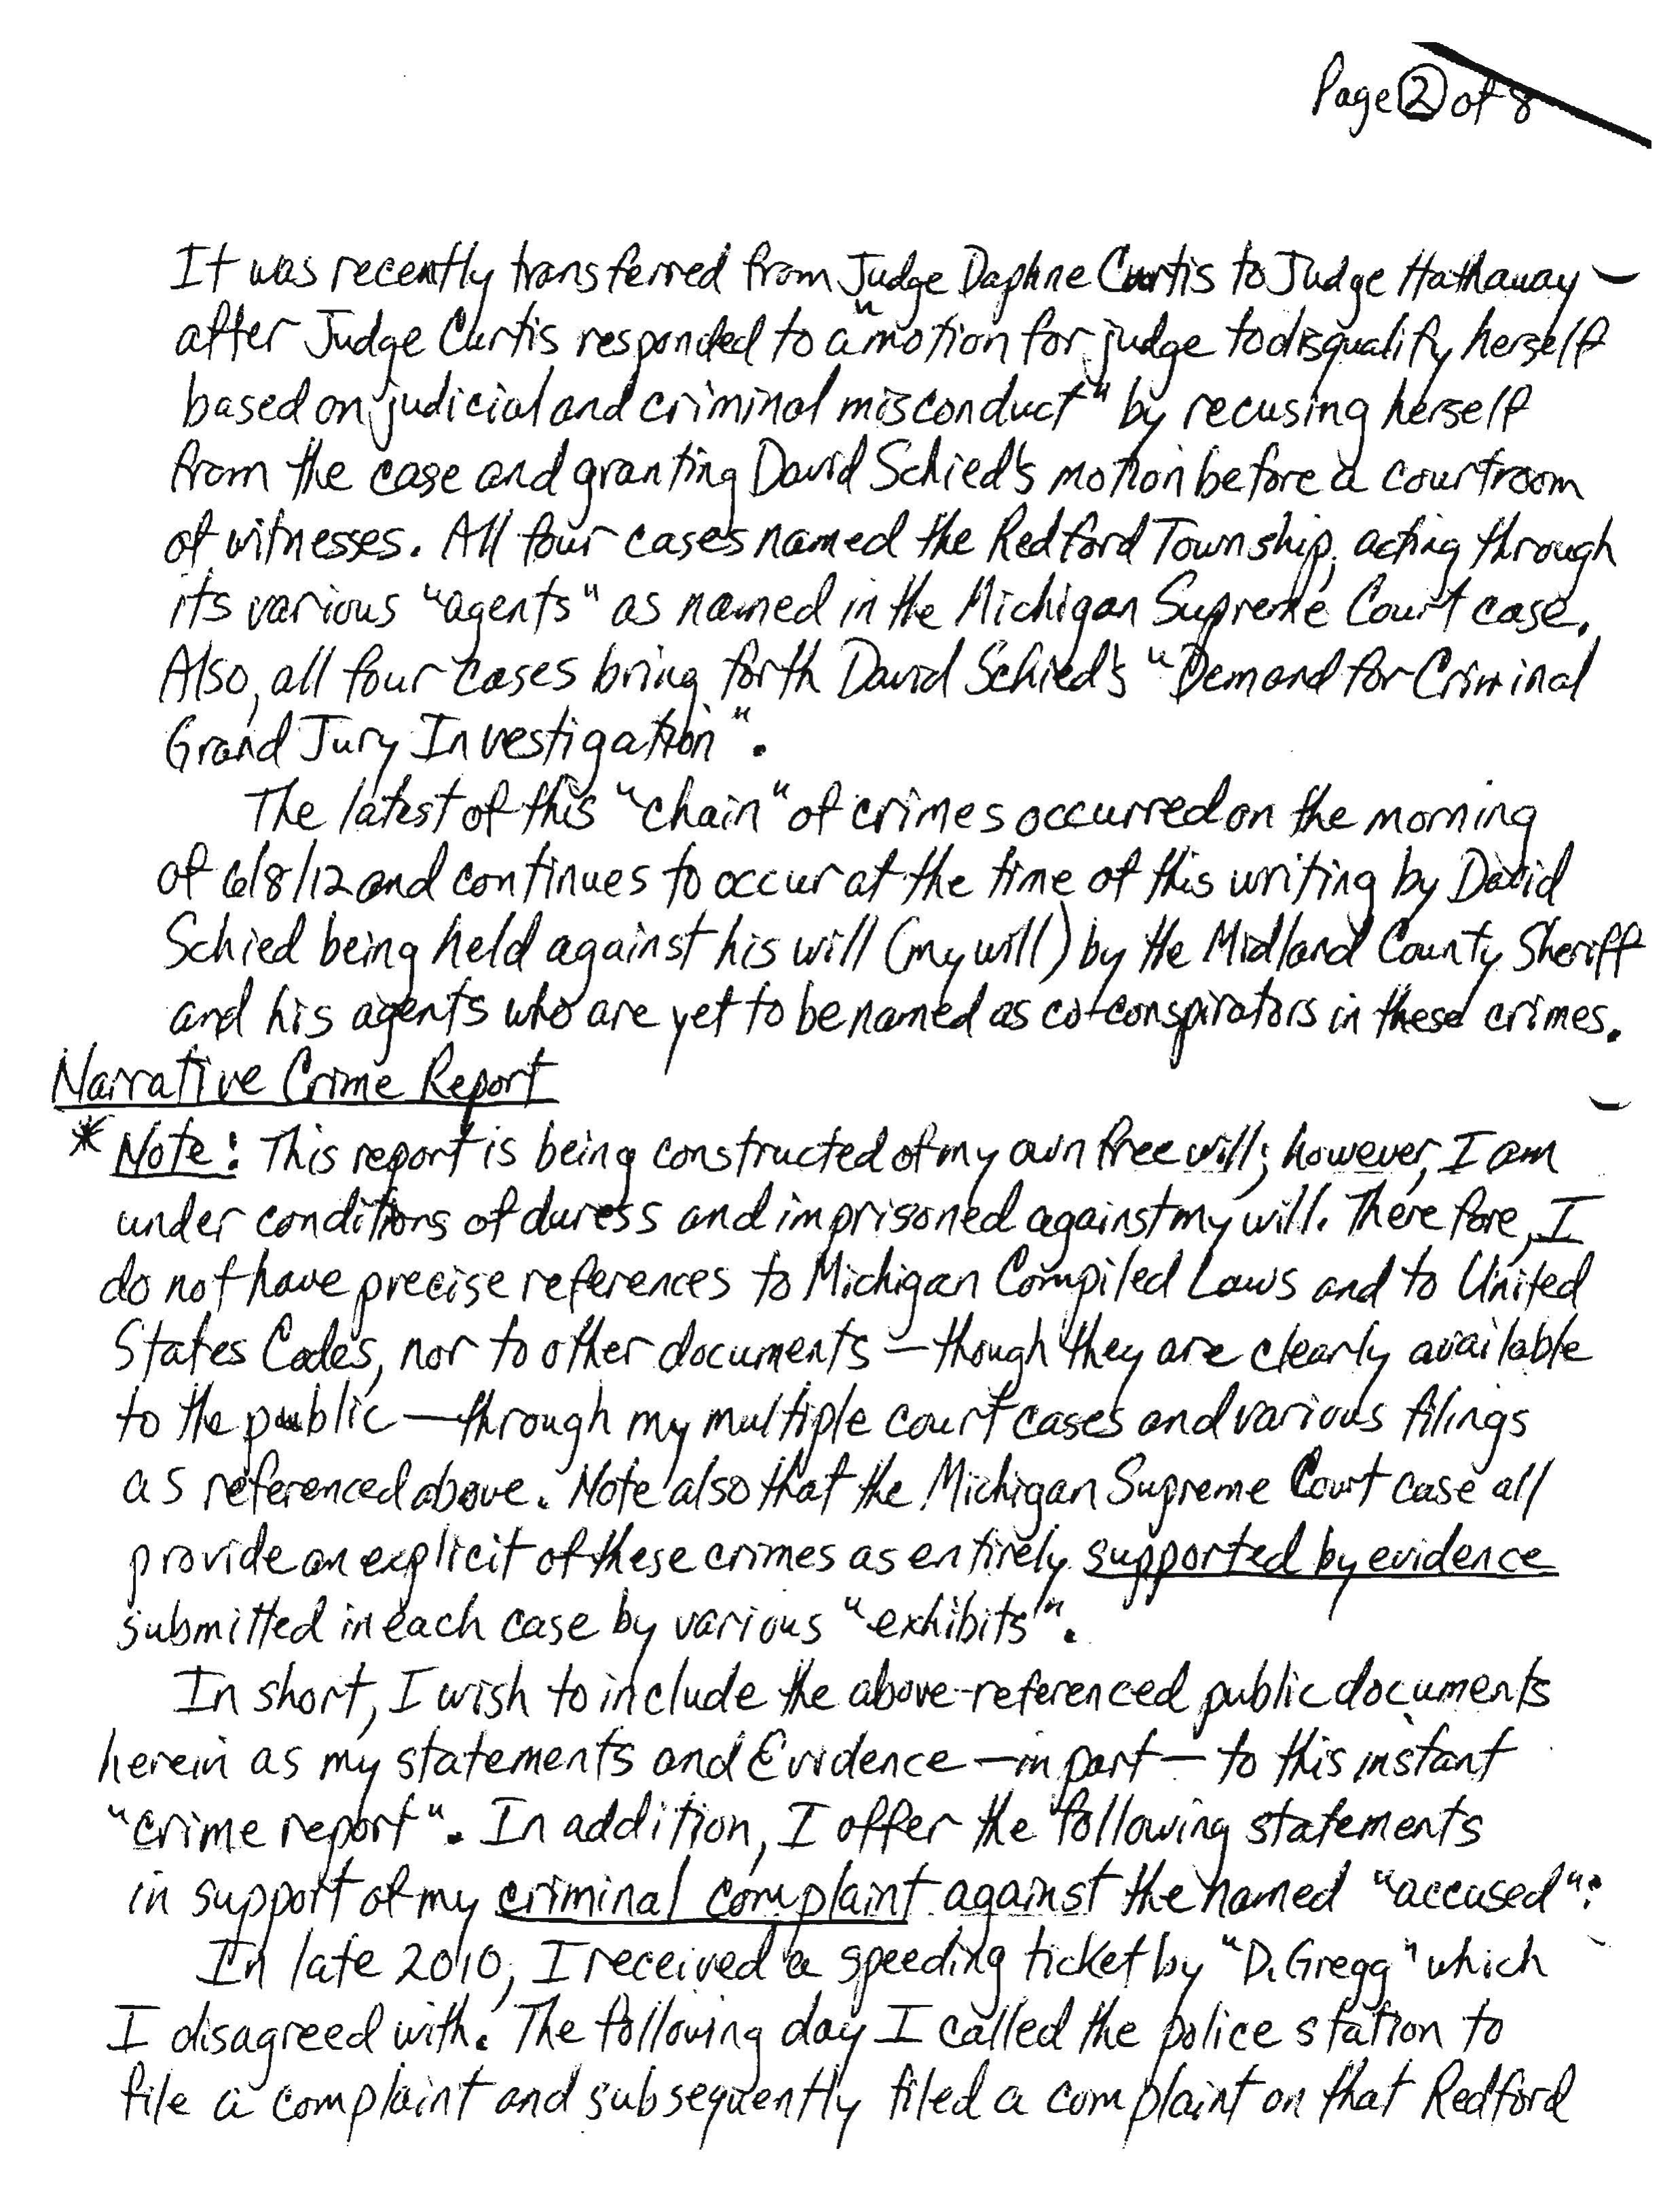 Page 2 of 8
It was recently transferred from Judge Daphne Curtis to Judge Hathaway
after Judge Curtis responded to a "motion for judge to disqualify herself
based on judicial and criminal misconduct" by recusing herself
from the case and granting David Schied's motion before a courtroom
of witnesses. All four cases named the Redford Township, acting through
its various "agents" as named in the Michigan Supreme Court case.
Also, all four cases bring forth David Schied's "Demand for Criminal
Grand Jury Investigation".
The latest of this "chain" of crimes occurred on the morning
of 6/8/12 and continues to occur at the time of this writing by David
Schied being held against his will (my will) by the Midland County Sheriff
and his agents who are yet to be named as co-conspirators in these crimes.
Narrative Crime Report
* Note: This report is being constructed of my own free will; however, I am
under conditions of duress and imprisoned against my will. Therefore, I
do not have precise references to Michigan Compiled Laws and to United
States Codes, nor to other documents — though they are clearly available
to the public — through my multiple court cases and various filings
as referenced above. Note also that the Michigan Supreme Court case all
provide an explicit of these crimes as entirely supported by evidence
submitted in each case by various "exhibits".
In short, I wish to include the above-referenced public documents
herein as my statements and Evidence — in part — to this instant
"crime report". In addition, I offer the following statements
in support of my criminal complaint against the named "accused":
In late 2010, I received a speeding ticket by "D. Gregg" which
I disagreed with. The following day I called the police station to
file a complaint and subsequently filed a complaint on that Redford